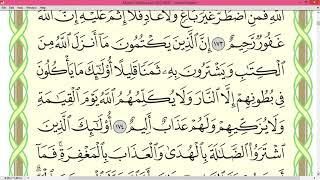 اللَّهِ فَمَنِ اضْطُرَّ غَيْرَ بَاغٍ وَلَا عَادٍ فَلَا إِثْمَ عَلَيْهِ إِنَّ اللَّهَ
غَفُورٌ رَّحِيمٌ ١٧٣ إِنَّ الَّذِينَ يَكْتُمُونَ مَا أَنزَلَ اللَّهُ مِنَ
الْكِتَابِ وَيَشْتَرُونَ بِهِ ثَمَنًا قَلِيلًا أُولَٰئِكَ مَا يَأْكُلُونَ
فِي بُطُونِهِمْ إِلَّا النَّارَ وَلَا يُكَلِّمُهُمُ اللَّهُ يَوْمَ الْقِيَامَةِ
وَلَا يُزَكِّيهِمْ وَلَهُمْ عَذَابٌ أَلِيمٌ ١٧٤ أُولَٰئِكَ الَّذِينَ
اشْتَرَوُا الضَّلَالَةَ بِالْهُدَىٰ وَالْعَذَابَ بِالْمَغْفِرَةِ فَمَا